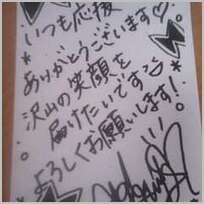 いつも応援
ありがとうございます♡
沢山の笑顔を
届けたいです
よろしくお願いします!